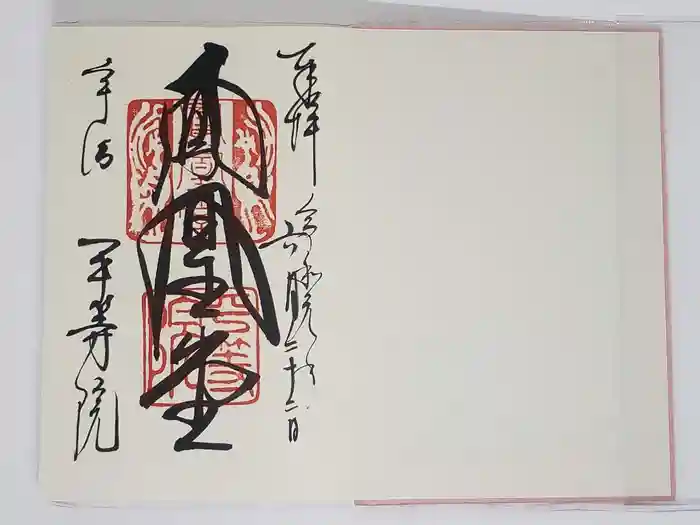 奉拝
令和元年
六月二十二日
鳳凰堂
宇治
平等院